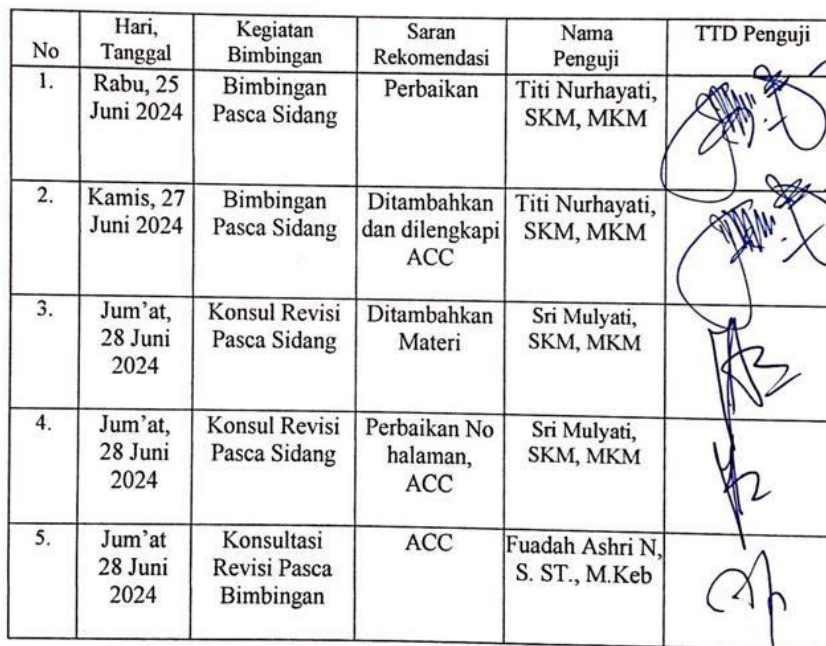 No
Hari,
Tanggal
Kegiatan
Bimbingan
Saran
Rekomendasi
Nama
Penguji
TTD Penguji
1.
Rabu, 25
Juni 2024
Bimbingan
Pasca Sidang
Perbaikan
Titi Nurhayati,
SKM, MKM
2.
Kamis, 27
Juni 2024
Bimbingan
Pasca Sidang
Ditambahkan
dan dilengkapi
ACC
Titi Nurhayati,
SKM, MKM
3.
Jum'at,
28 Juni
2024
Konsul Revisi
Pasca Sidang
Ditambahkan
Materi
Sri Mulyati,
SKM, MKM
4.
Jum'at,
28 Juni
2024
Konsul Revisi
Pasca Sidang
Perbaikan No
halaman,
ACC
Sri Mulyati,
SKM, MKM
5.
Jum'at
28 Juni
2024
Konsultasi
Revisi Pasca
Bimbingan
ACC
Fuadah Ashri N,
S. ST., M.Keb